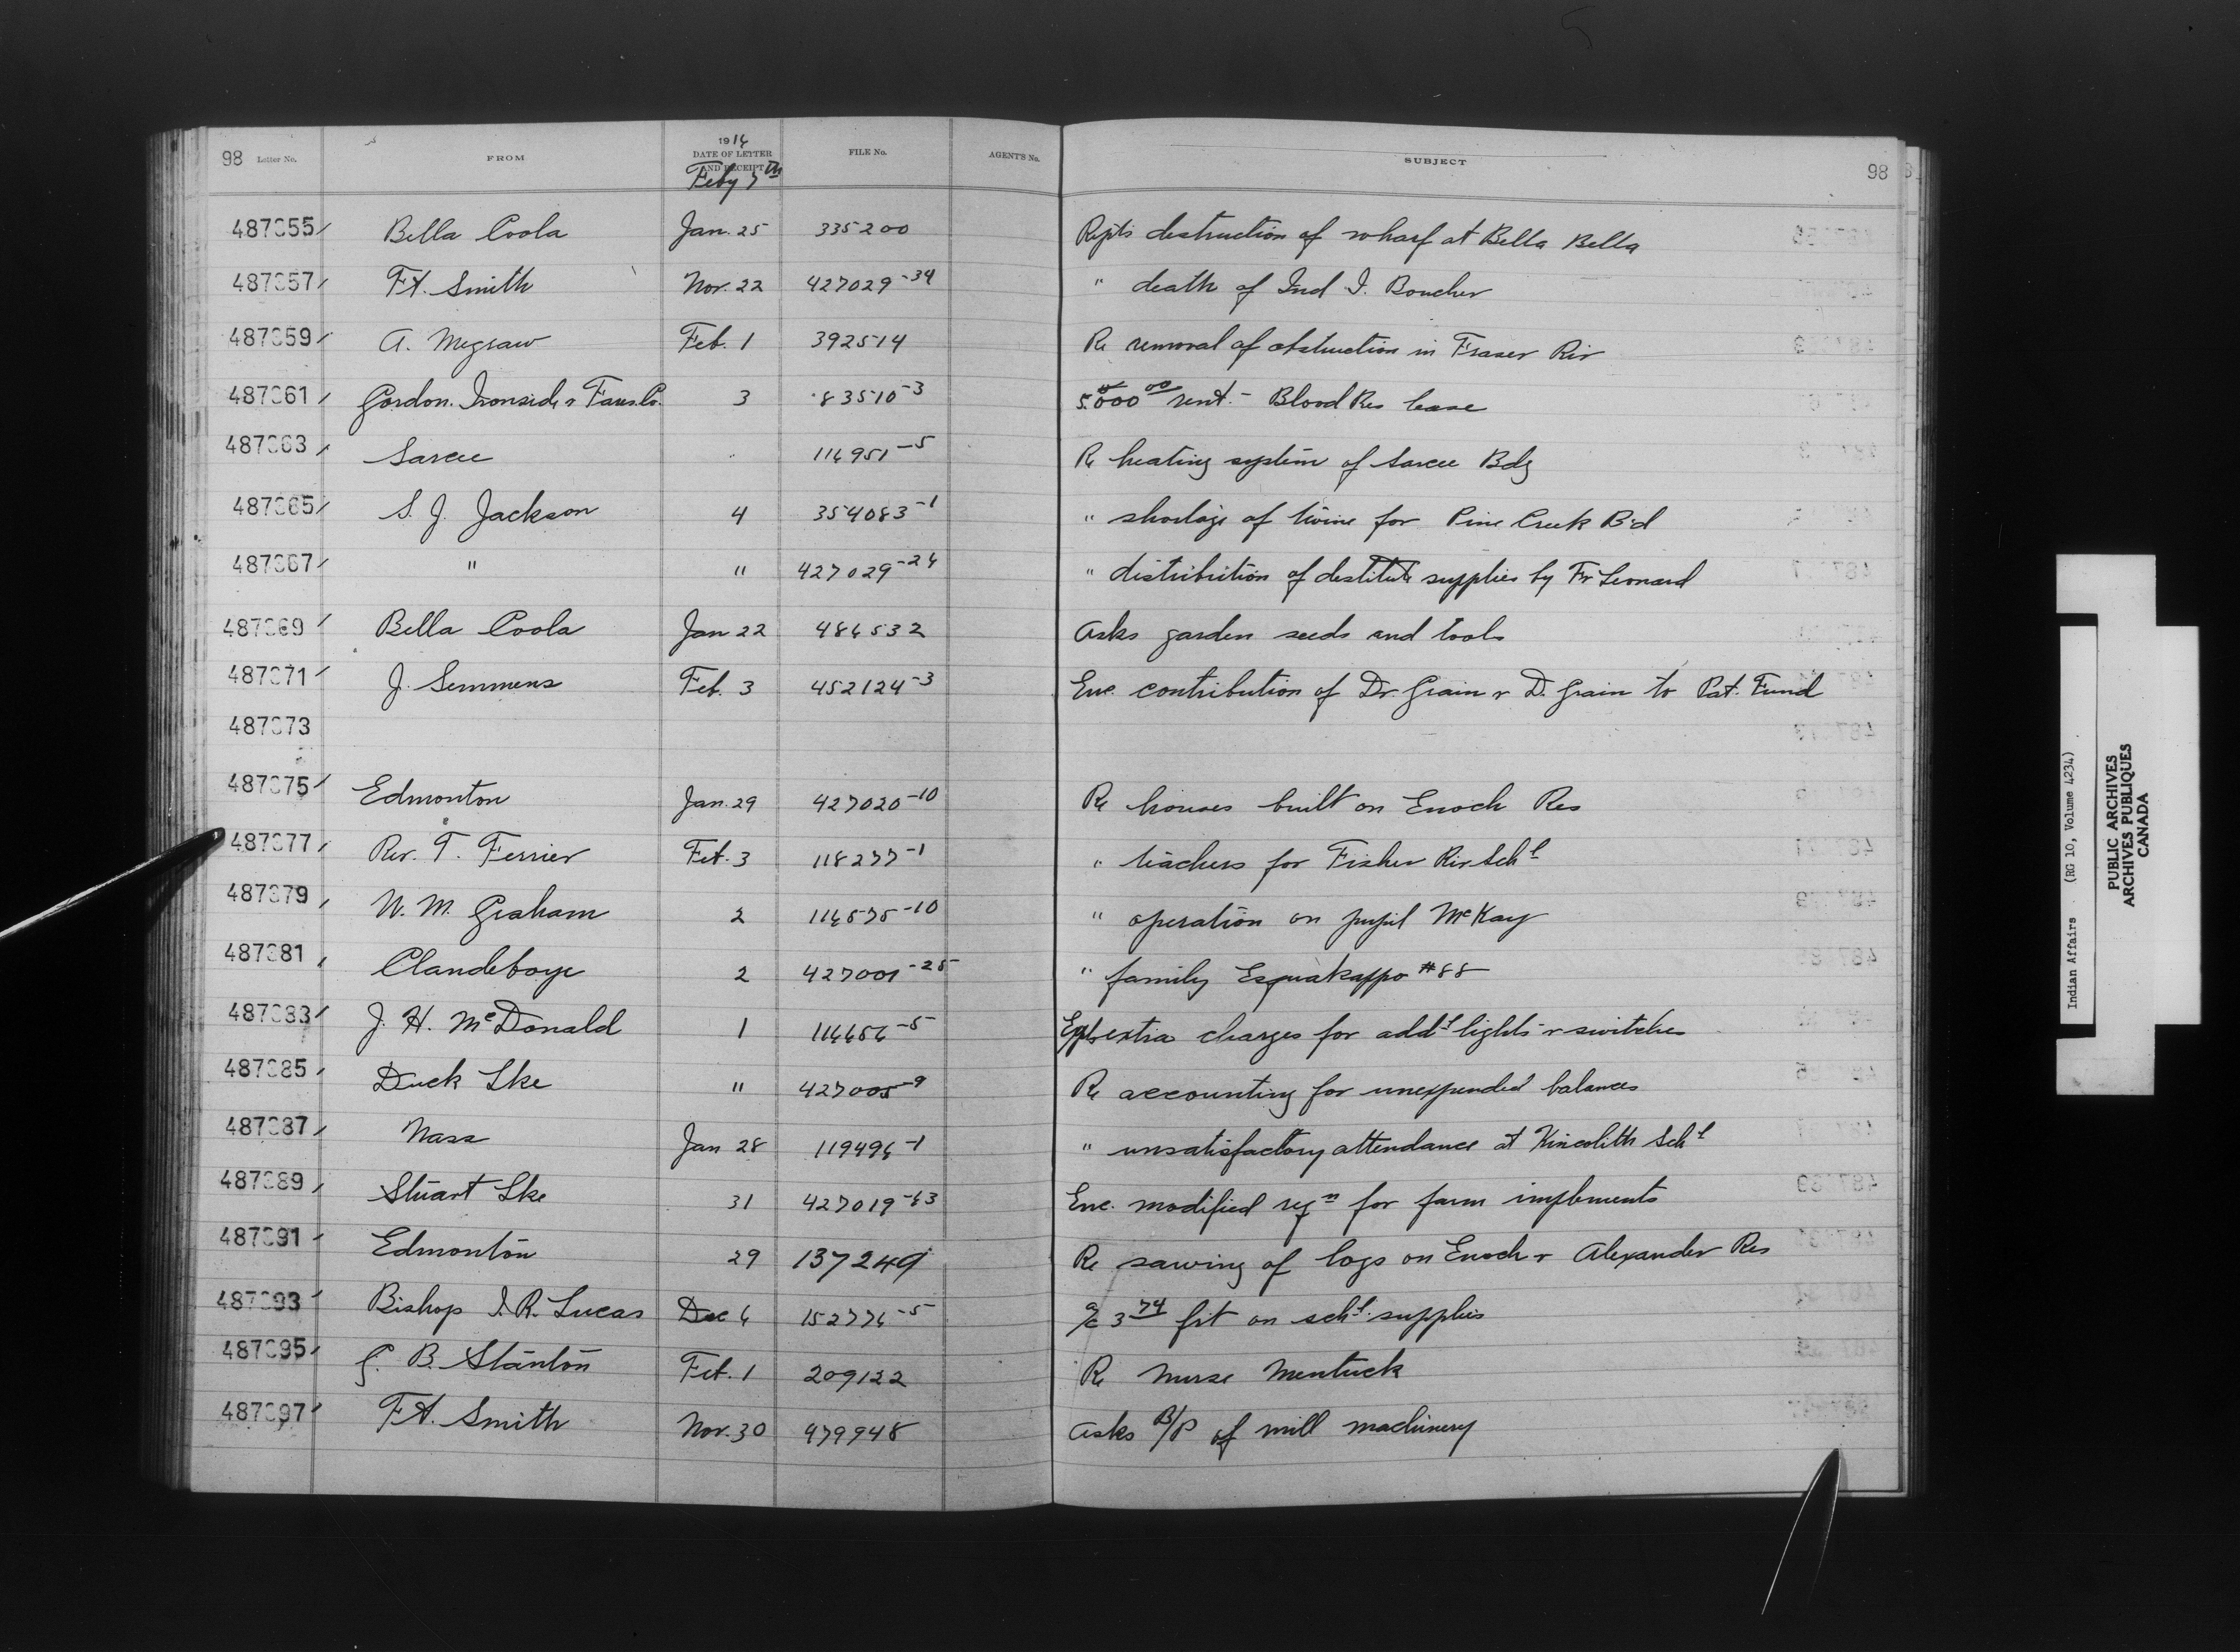 98 Letter No. FROM 1916 DATE OF LETTER AND RECEIPT Feby 7th FILE No. AGENT'S No. SUBJECT 98
487055 Bella Coola Jan. 25 335200 Repts destruction of wharf at Bella Bella
487057 Ft. Smith Nov. 22 427029-34 " death of Ind I. Boucher
487059 A. Megraw Feb. 1 392514 Re removal of obstruction in Fraser Riv
487061 Gordon. Ironside & Fares. Co. 3 83510-3 5.000 00 rent. - Blood Res lease
487063 Sarcee 116951-5 Re heating system of Sarcee Bdg
487065 S. J. Jackson 4 354083-1 " shortage of twine for Pine Creek B'd
487067 " " 427029-26 " distribution of destitute supplies by Fr Leonard
487069 Bella Coola Jan 22 486532 Asks garden seeds and tools
487071 J. Semmens Feb. 3 452124-3 Enc. contribution of Dr. Grain & D. Grain to Pat. Fund
487073
487075 Edmonton Jan. 29 427020-10 Re houses built on Enoch Res
487077 Rev. T. Ferrier Feb. 3 118277-1 " teachers for Fisher Riv Schl
487079 W. M. Graham 2 116575-10 " operation on pupil McKay
487081 Clandeboye 2 427001-25 " family Esquakappo #88
487083 J. H. McDonald 1 116656-5 Expl. extra charges for addl lights & switches
487085 Duck Lke " 427005-9 Re accounting for unexpended balances
487087 Nass Jan 28 119496-1 " unsatisfactory attendance at Kincolith Schl
487089 Stuart Lke 31 427019-63 Enc. modified reqn for farm implements
487091 Edmonton 29 137249 Re sawing of logs on Enoch & Alexander Res
487093 Bishop J. R. Lucas Dec 6 152776-5 a/c 3 74 frt on schl. supplies
487095 G. B. Stanton Feb. 1 209122 Re Nurse Mentuck
487097 Ft. Smith Nov. 30 479948 Asks B/P of mill machinery
Indian Affairs (RG 10, Volume 4234)
PUBLIC ARCHIVES
ARCHIVES PUBLIQUES
CANADA